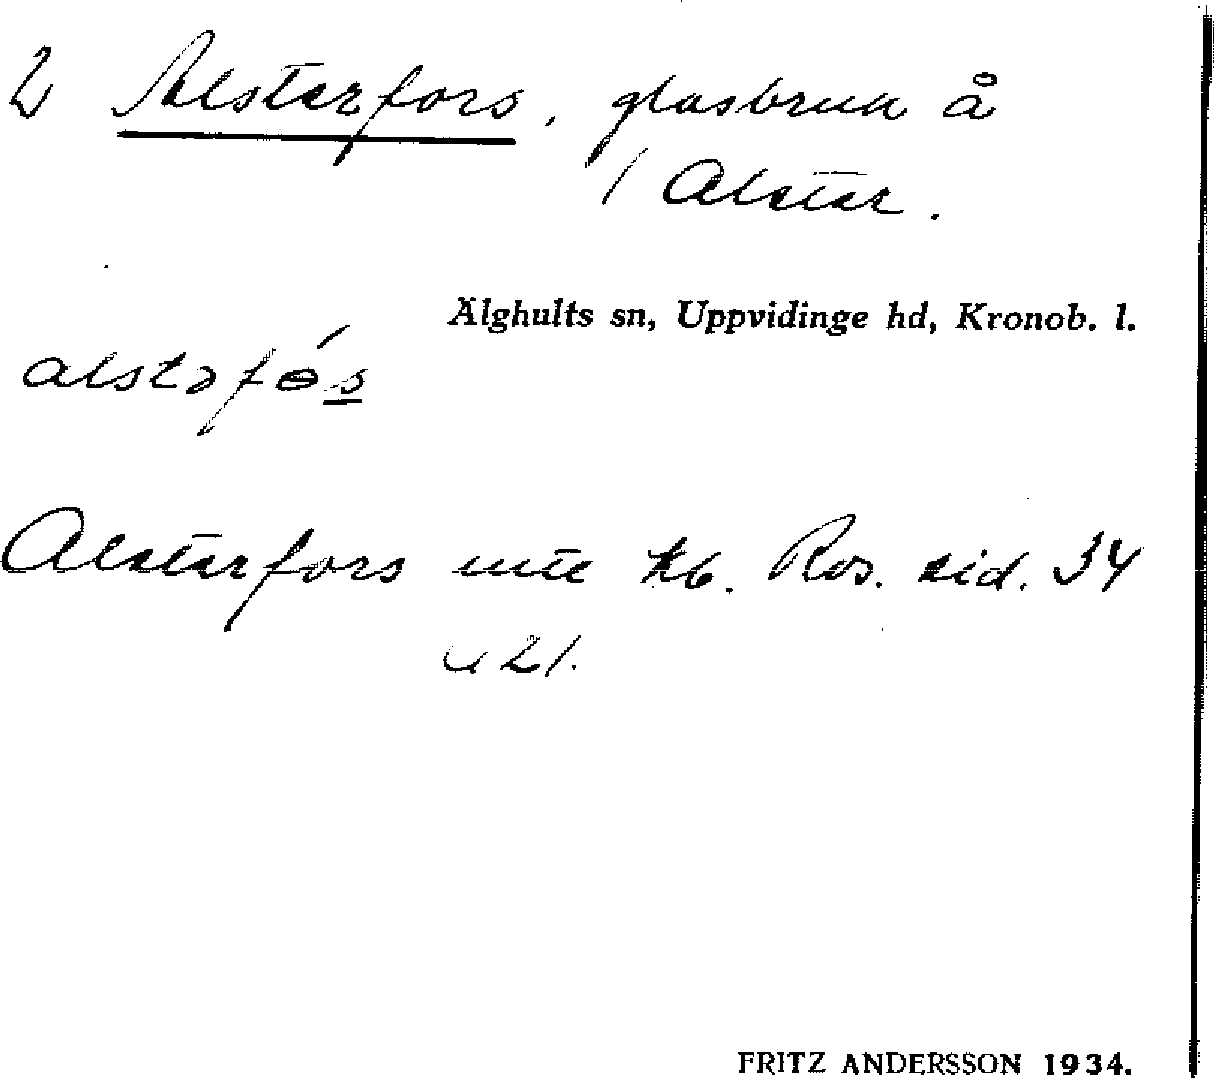 2 Alsterfors, glasbruk å
/ Alster.
Älghults sn, Uppvidinge hd, Kronob. l.
alstəfɵ́s
Alsterfors inte kb. Ros. sid. 34
u 21.
FRITZ ANDERSSON 1934.